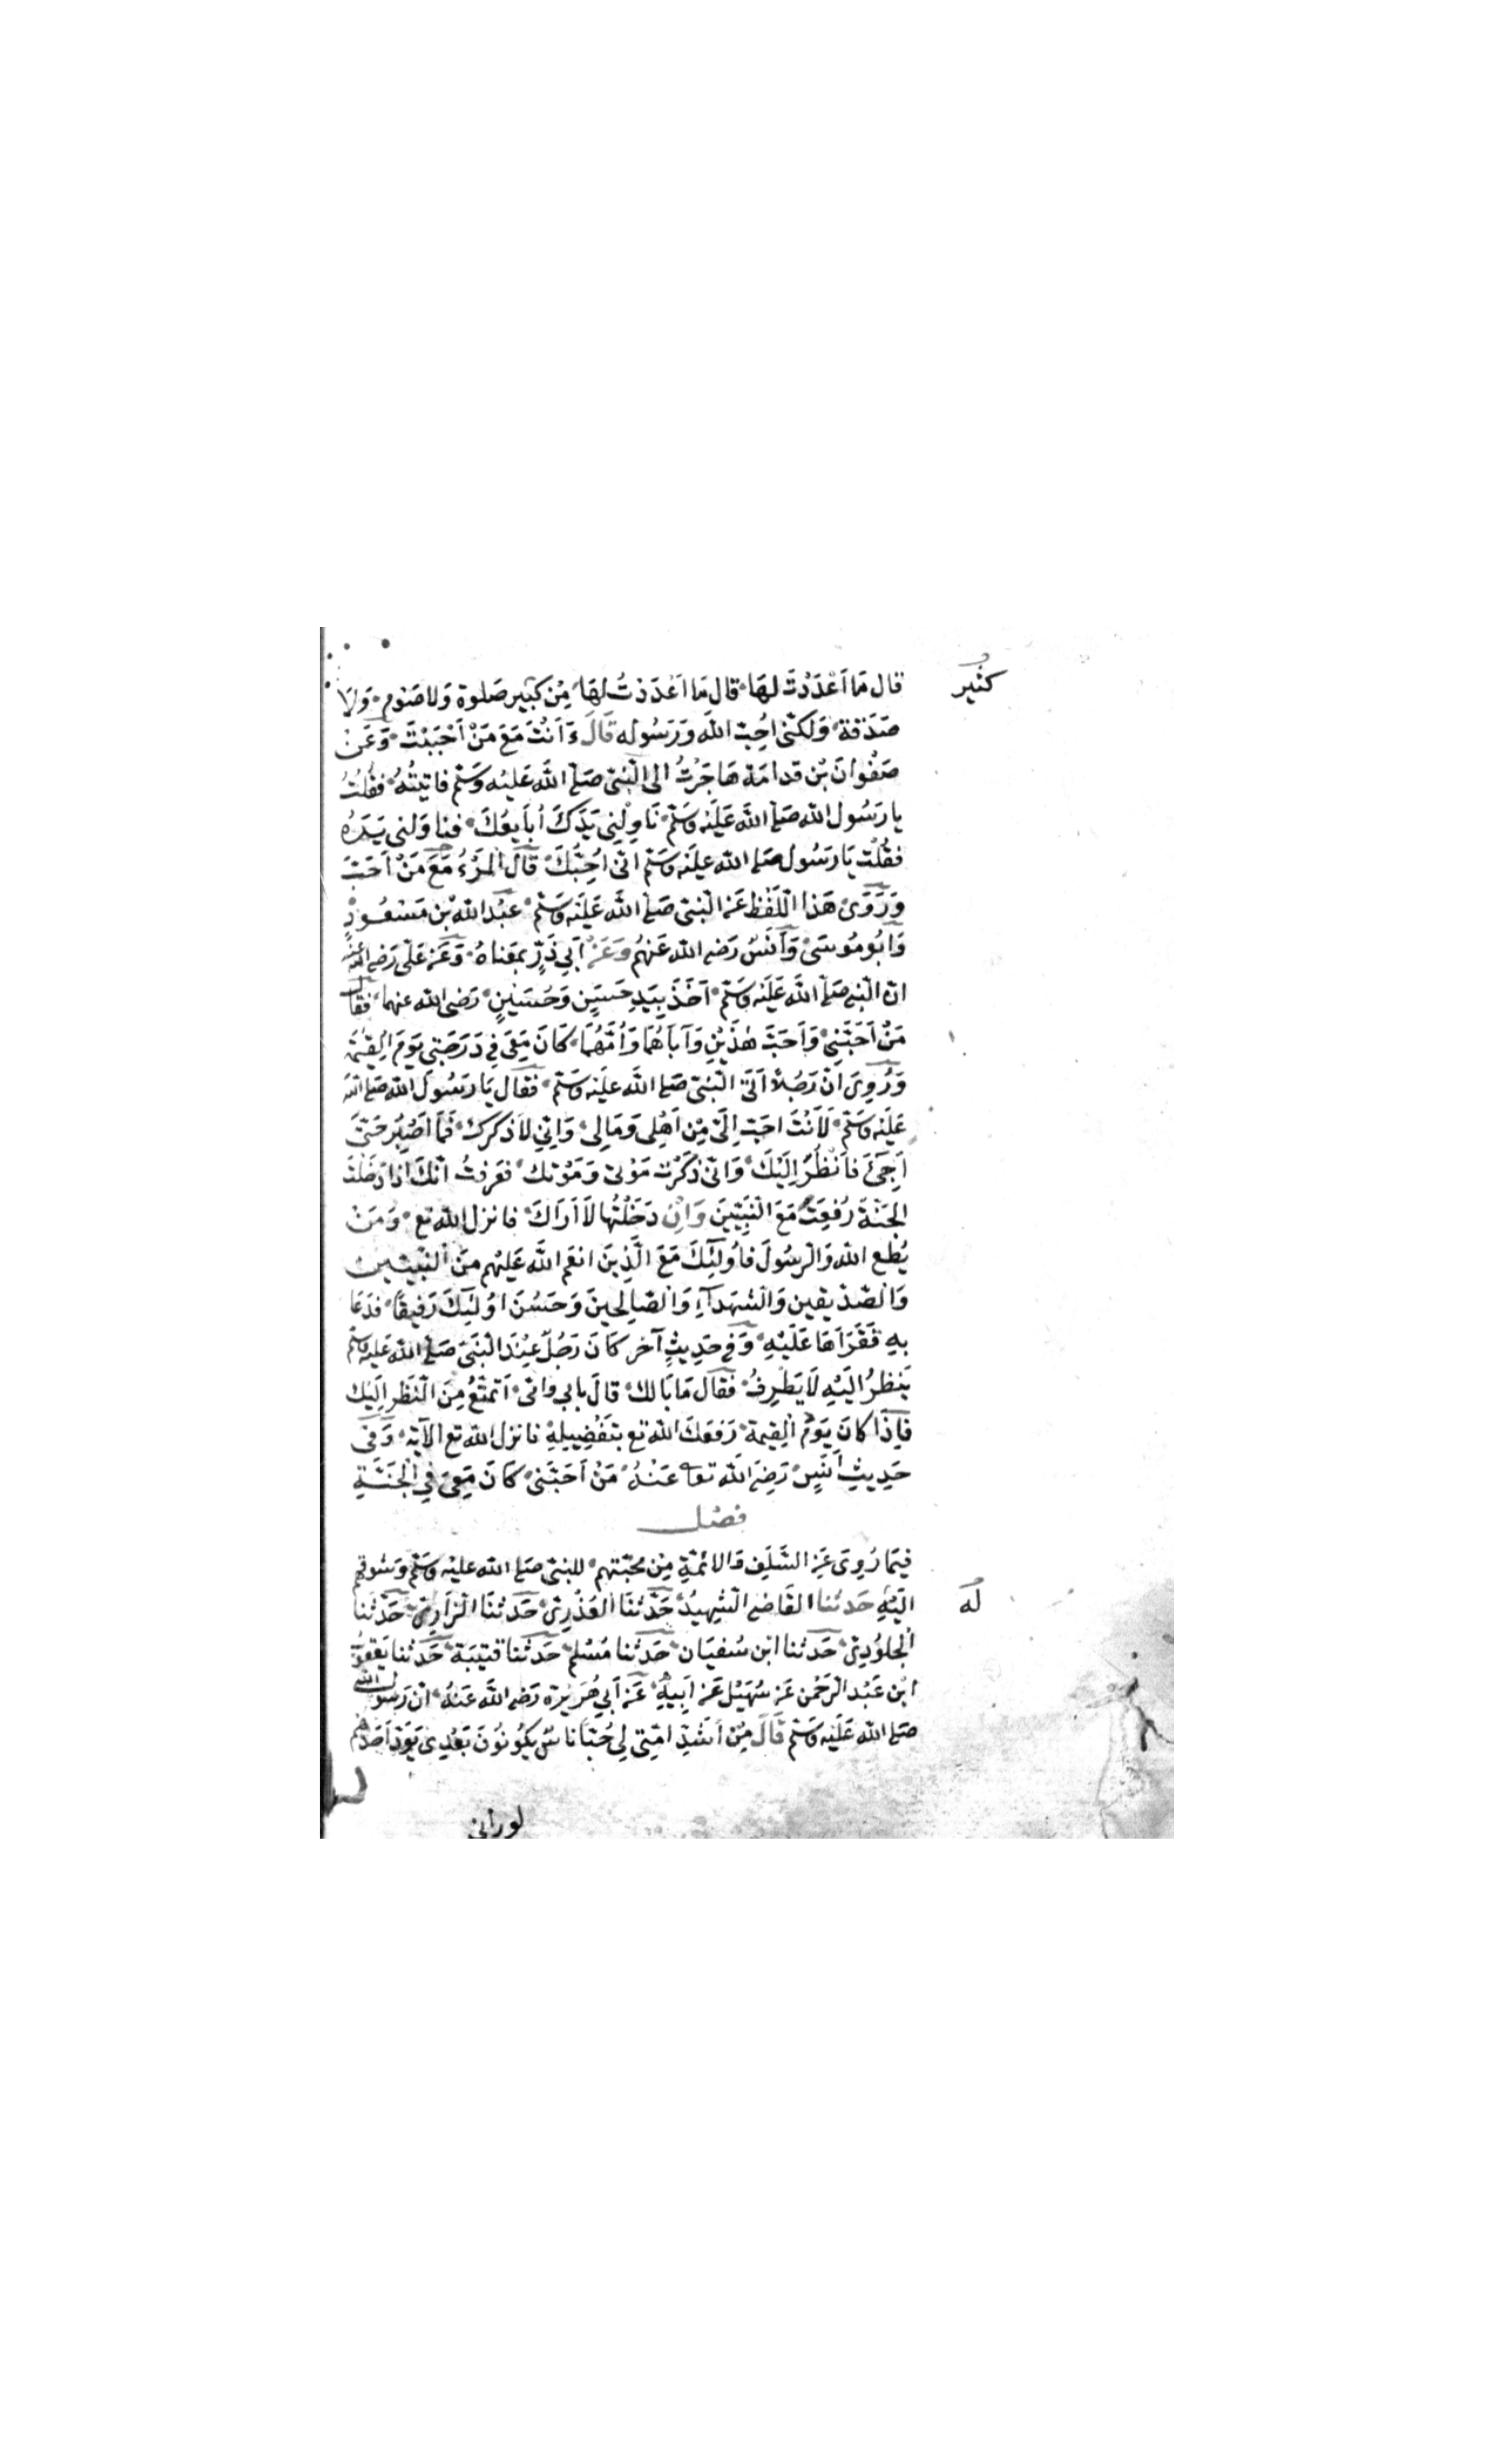 قَالَ مَا اَعْدَدْتَ لَهَا قَالَ مَا اَعْدَدْتُ لَهَا مِنْ كَبِيرِ صَلوٰة وَلَا صَوْمٍ وَلَا
كثير
صَدَقَة وَلٰكِنّى اُحِبُّ اللّٰه وَرَسُوله قَالَ ءَاَنْتَ مَعَ مَنْ اَحْبَبْتَ وَعَنْ
صَفْوَانَ بْن قدامَة هَاجَرْتُ الى النّبىّ صَلّى اللّٰه عَليْه وَسَلّم فاتيْتُهُ فقُلْتُ
يا رَسُول اللّٰه صَلّى اللّٰه عَلَيْه وَسَلّم نَاوِلْنِى يَدَكَ اُبَايِعُكَ فنا وَلَنى يَدَهُ
فقُلْت يَا رَسُول صَلّى اللّٰه عليْه وَسَلّم انّى اُحِبُّكَ قَالَ الْمَرْءُ مَعَ مَنْ اَحَبَّ
وَرَوَى هَذا اللّفْظ عَن النّبىّ صَلّى اللّٰه عَلَيْه وَسَلّم عَبْد اللّٰه بْن مَسْعُودٍ
وَابُو مُوسَى وَاَنَسٌ رَضى اللّٰه عَنْهُم وَعَنْ اَبِى ذَرٍّ بمَعْناهُ وَعَنْ عَلىّ رَضى اللّٰه عنه
انّ النّبى صَلّى اللّٰه عَلَيْه وَسَلّم اَخَذَ بيَدِ حَسَنٍ وَحُسَيْنٍ رَضى اللّٰه عنهما فقال
مَنْ اَحَبَّنِى وَاَحَبَّ هٰذَيْنِ وَآبَاهُمَا وَاُمّهُمَا كَانَ مَعِى فِى دَرَجَتِى يَوْمَ الْقِيٰمَة
وَرُوِىَ انّ رَجُلاً اَتَى النّبىّ صَلّى اللّٰه عَلَيْه وَسَلّم فقَال يَا رَسُولَ اللّٰه صَلّى اللّٰه
عَلَيْه وَسَلّم لَاَنْتَ احَبّ اِلَىّ مِنْ اَهْلِى وَمَالِى وَاِنّى لَاذكرك فَمَا اَصْبِر حَتّى
اَجِئَ فاَنْظُرُ اِلَيْكَ وَانّى ذكَرْت مَوْتى وَمَوْتك فعَرفْتُ انّكَ اذا دَخَلْتَ
الْجَنّة رُفِعْتَ مَعَ النَّبِيّينَ وَاِنْ دَخَلْتُها لَا اَرَاكَ فانزل اللّٰه تع وَمَنْ
يُطِع اللّٰه وَالرسُولَ فاُولٰئِكَ مَعَ الَّذِينَ انعَم اللّٰه عَليْهم مِنَ النّبيّين
وَالصّدّيقين وَالشّهَدَآءِ وَالصّالِحينَ وَحَسُنَ اُولٰئِكَ رَفِيقًا فدَعَا
بِهِ فَقَرَاَهَا عَلَيْهِ وَفِى حَدِيثٍ آخر كَانَ رَجُلٌ عِنْدَ النّبىّ صَلّى اللّٰه عَليْه وَسَلّم
يَنظرُ اليْهِ لَا يَطْرِفُ فقَال مَا بَالك قالَ بابى وامّى اَتَمَتّعُ مِنَ النّظَر اِلَيك
فاِذَا كانَ يَوْمُ الْقِيٰمة رَفعَكَ اللّٰه تع بتَفْضِيلِهِ فانزل اللّٰه تع الآية وَفِى
حَدِيثِ اَنَسٍ رَضِىَ اللّٰه تعا عَنْهُ مَنْ اَحَبَّنى كَانَ مَعِى فِى الْجَنّةِ
فصل
فِيمَا رُوِىَ عَنِ السّلَفِ وَالائمّةِ مِنْ مَحَبّتِهم للنبىّ صَلّى اللّٰه عليْه وَسَلّم وَشَوْقِهِم
اليْهِ حَدثنا القَاضى الشّهِيدُ حَدّثنَا العُذْرِىّ حَدّثنَا الرّازِىّ حَدّثَنا
له
الْجلُودِىّ حَدّثنا ابن سُفيَان حَدّثنا مُسْلم حَدّثنا قتيبَة حَدّثنا يَعْقُوب
ابْن عَبْد الرّحْمٰن عَن سُهَيْل عَن اَبِيهِ عَنْ اَبِى هُرَيْرَة رَضى اللّٰه عَنْهُ انّ رَسُول اللّٰه
صَلّى اللّٰه عَلَيْه وَسَلّم قَالَ مِنْ اَشَدِّ امّتِى لِى حُبّا نَاسٌ يَكُونُونَ بَعْدِى يَوَدّ اَحَدُهُم
لورآنى